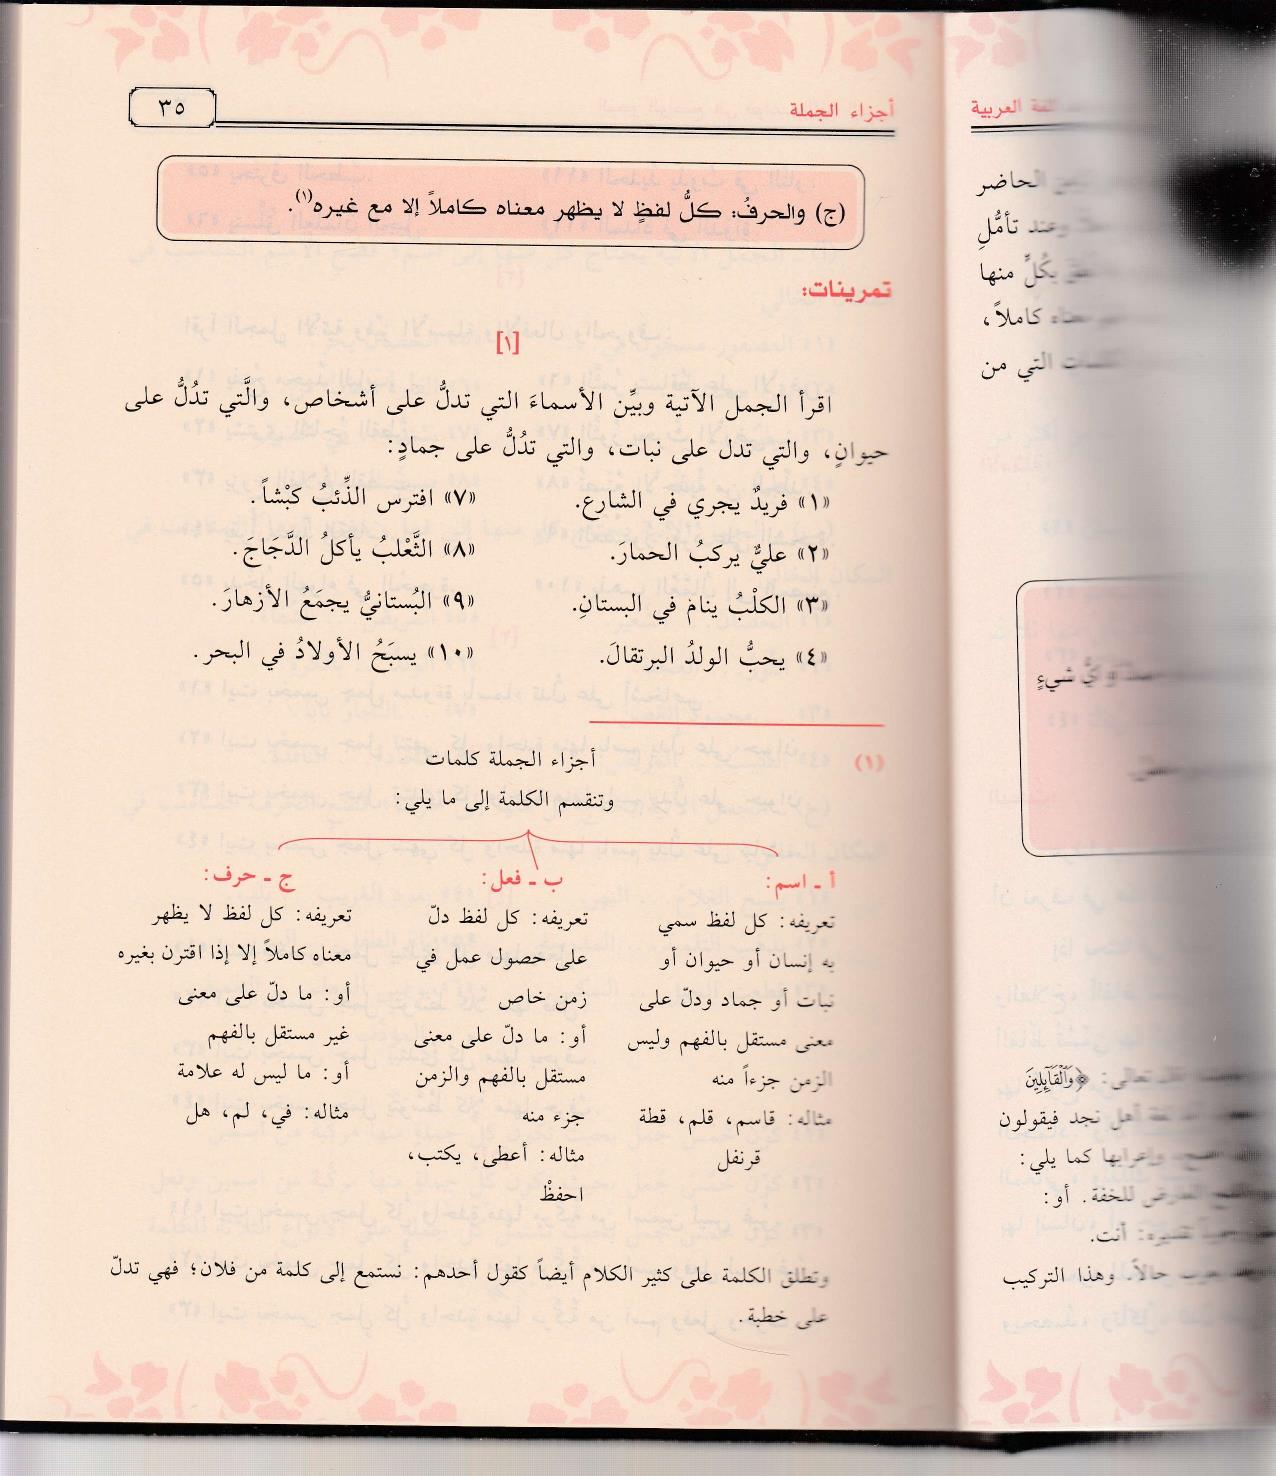 أجزاء الجملة
٣٥
(ج) والحرفُ: كلُّ لفظٍ لا يظهر معناه كاملاً إلا مع غيره(١).
تمرينات:
[١]
اقرأ الجمل الآتية وبيِّن الأسماءَ التي تدلُّ على أشخاص، والَّتي تدُلُّ على
حيوانٍ، والتي تدل على نبات، والتي تدُلُّ على جمادٍ:
«١» فريدٌ يجري في الشارع.
«٢» عليٌّ يركبُ الحمارَ.
«٣» الكلْبُ ينام في البستانِ.
«٤» يحبُّ الولدُ البرتقالَ.
«٧» افترس الذِّئبُ كَبْشاً.
«٨» الثَّعْلبُ يأكلُ الدَّجَاجَ.
«٩» البُستانيُّ يجمَعُ الأزهارَ.
«١٠» يسبَحُ الأولادُ في البحر.
(١)
أجزاء الجملة كلمات
وتنقسم الكلمة إلى ما يلي:
أ ـ اسم:
تعريفه: كل لفظ سمي
به إنسان أو حيوان أو
نبات أو جماد ودلّ على
معنى مستقل بالفهم وليس
الزمن جزءاً منه
مثاله: قاسم، قلم، قطة
قرنفل
ب ـ فعل:
تعريفه: كل لفظ دلّ
على حصول عمل في
زمن خاص
أو: ما دلّ على معنى
مستقل بالفهم والزمن
جزء منه
مثاله: أعطى، يكتب،
احفظْ
ج ـ حرف:
تعريفه: كل لفظ لا يظهر
معناه كاملاً إلا إذا اقترن بغيره
أو: ما دلّ على معنى
غير مستقل بالفهم
أو: ما ليس له علامة
مثاله: في، لم، هل
وتطلق الكلمة على كثير الكلام أيضاً كقول أحدهم: نستمع إلى كلمة من فلان؛ فهي تدلّ
على خطبة.
العربية
الحاضر
وعند تأمُّلِ
منها
كاملاً،
التي من
شيءٍ
تعالى: ﴿وَٱلْقَآئِلِينَ
أهل نجد فيقولون
وإعرابها كما يلي:
للخفة. أو:
تقديره: أنت.
حالاً. وهذا التركيب